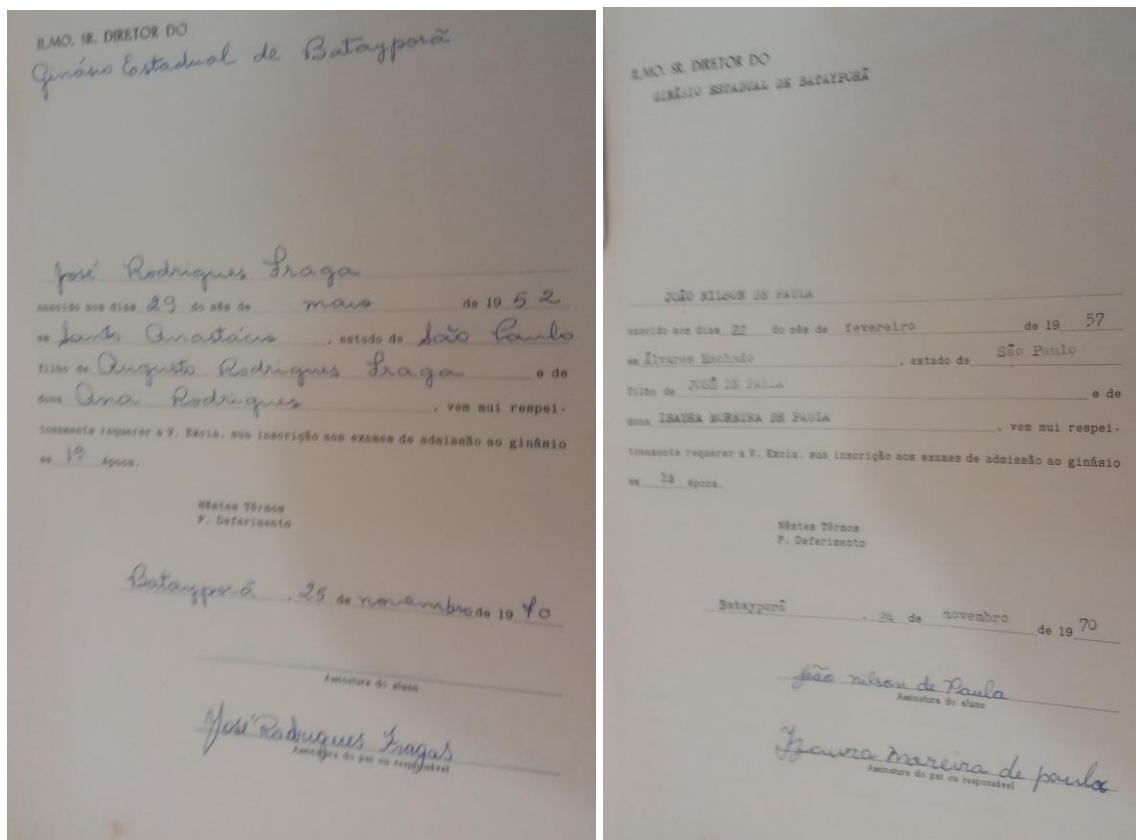 ILMO. SR. DIRETOR DO
Ginásio Estadual de Batayporã
José Rodrigues Fraga
nascido aos dias 29 do mês de maio de 19 52
em Santo Anastácio , estado de São Paulo
filho de Augusto Rodrigues Fraga e de
dona Ana Rodrigues , vem mui respei-
tosamente requerer a V. Excia. sua inscrição aos exames de admissão ao ginásio
em 1ª época.
Nêstes Têrmos
P. Deferimento
Batayporã , 25 de novembro de 19 70
Assinatura do aluno
José Rodrigues Fragas
Assinatura do pai ou responsável
ILMO. SR. DIRETOR DO
GINÁSIO ESTADUAL DE BATAYPORÃ
JOÃO NILSON DE PAULA
nascido aos dias 22 do mês de fevereiro de 19 57
em Álvares Machado , estado de São Paulo
filho de JOSÉ DE PAULA e de
dona ISAURA MOREIRA DE PAULA , vem mui respei-
tosamente requerer a V. Excia. sua inscrição aos exames de admissão ao ginásio
em 1ª época.
Nêstes Têrmos
P. Deferimento
Batayporã , 24 de novembro de 19 70
João nilson de Paula
Assinatura do aluno
Izaura moreira de paula
Assinatura do pai ou responsável